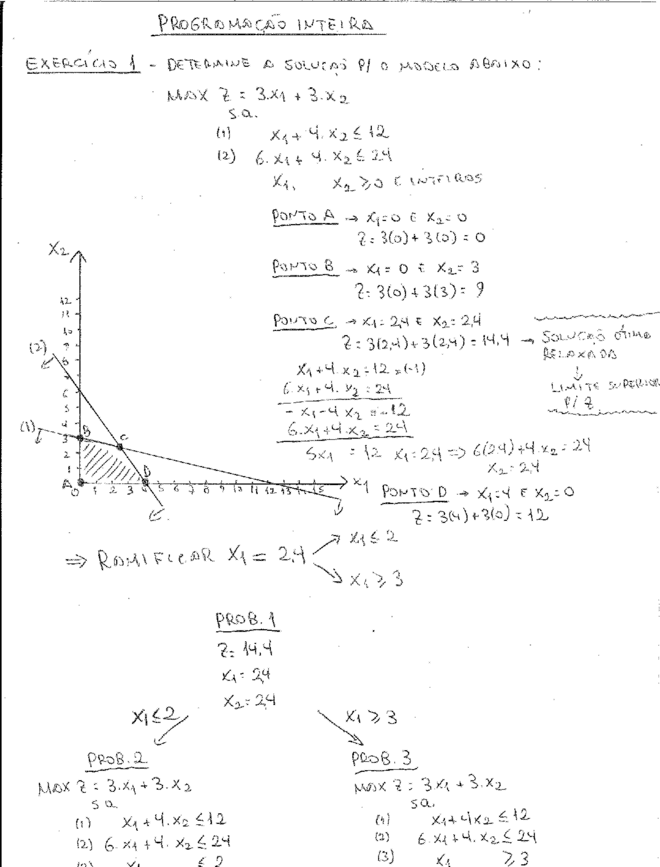 PROGRAMAÇÃO INTEIRA
EXERCÍCIO 1 - DETERMINE A SOLUÇÃO P/ O MODELO ABAIXO:
MAX Z = 3.x1 + 3.x2
s.a.
(1) x1 + 4.x2 ≤ 12
(2) 6.x1 + 4.x2 ≤ 24
x1, x2 ≥ 0 E INTEIROS
PONTO A → x1=0 E x2=0
Z=3(0)+3(0)=0
PONTO B → x1=0 E x2=3
Z=3(0)+3(3)=9
PONTO C → x1=2,4 E x2=2,4
Z=3(2,4)+3(2,4)=14,4 → SOLUÇÃO ÓTIMA
RELAXADA
↓
LIMITE SUPERIOR
P/ Z
x1+4.x2=12 ×(-1)
6.x1+4.x2=24
-x1-4x2=-12
6.x1+4.x2=24
5x1 = 12 x1=2,4 ⇒ 6(2,4)+4.x2=24
x2=2,4
PONTO D → x1=4 E x2=0
Z=3(4)+3(0)=12
x2
12
11
10
9
8
7
6
5
4
3
2
1
(2)
(1)
B
C
A
D
0 1 2 3 4 5 6 7 8 9 10 11 12 13 14 15
x1
⇒ RAMIFICAR x1 = 2,4
x1 ≤ 2
x1 ≥ 3
PROB.1
Z= 14,4
x1= 2,4
x2= 2,4
x1 ≤ 2 x1 ≥ 3
PROB.2
MAX Z = 3.x1 + 3.x2
s.a.
(1) x1 + 4.x2 ≤ 12
(2) 6.x1 + 4.x2 ≤ 24
(3) x1 ≤ 2
PROB.3
MAX Z = 3x1 + 3.x2
s.a.
(1) x1 + 4x2 ≤ 12
(2) 6.x1 + 4.x2 ≤ 24
(3) x1 ≥ 3